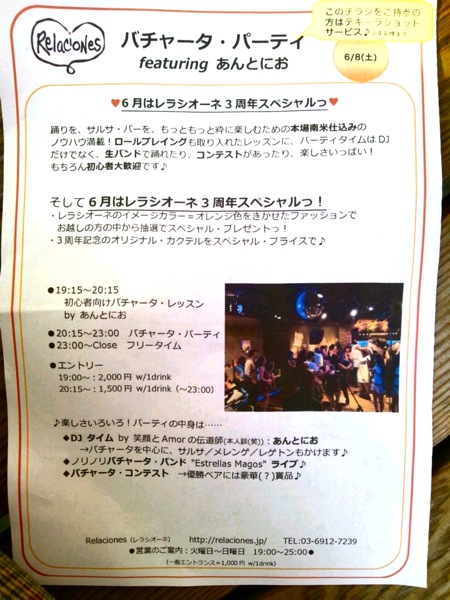 Relaciones
バチャータ・パーティ
featuring あんとにお
このチラシをご持参の
方はテキーラショット
サービス♪
6/8(土)
♥6月はレラシオーネ3周年スペシャルっ♥
踊りを、サルサ・バーを、もっともっと粋に楽しむための本場南米仕込みの
ノウハウ満載！ロールプレイングも取り入れたレッスンに、パーティタイムはDJ
だけでなく、生バンドで踊れたり、コンテストがあったり、楽しさいっぱい！
もちろん初心者大歓迎です♪
そして6月はレラシオーネ3周年スペシャルっ！
・レラシオーネのイメージカラー＝オレンジ色をきかせたファッションで
お越しの方の中から抽選でスペシャル・プレゼントっ！
・3周年記念のオリジナル・カクテルをスペシャル・プライスで♪
●19:15～20:15
初心者向けバチャータ・レッスン
by あんとにお
●20:15～23:00 バチャータ・パーティ
●23:00～Close フリータイム
●エントリー
19:00～：2,000円 w/1drink
20:15～：1,500円 w/1drink（～23:00）
♪楽しさいろいろ！パーティの中身は……
◆DJ タイム by 笑顔とAmorの伝道師(本人談(笑))：あんとにお
→バチャータを中心に、サルサ／メレンゲ／レゲトンもかけます♪
◆ノリノリバチャータ・バンド "Estrellas Magos" ライブ♪
◆バチャータ・コンテスト →優勝ペアには豪華(？)賞品♪
Relaciones（レラシオーネ） http://relaciones.jp/ TEL:03-6912-7239
●営業のご案内：火曜日～日曜日 19:00～25:00●
（一般エントランス＝1,000円 w/1drink）